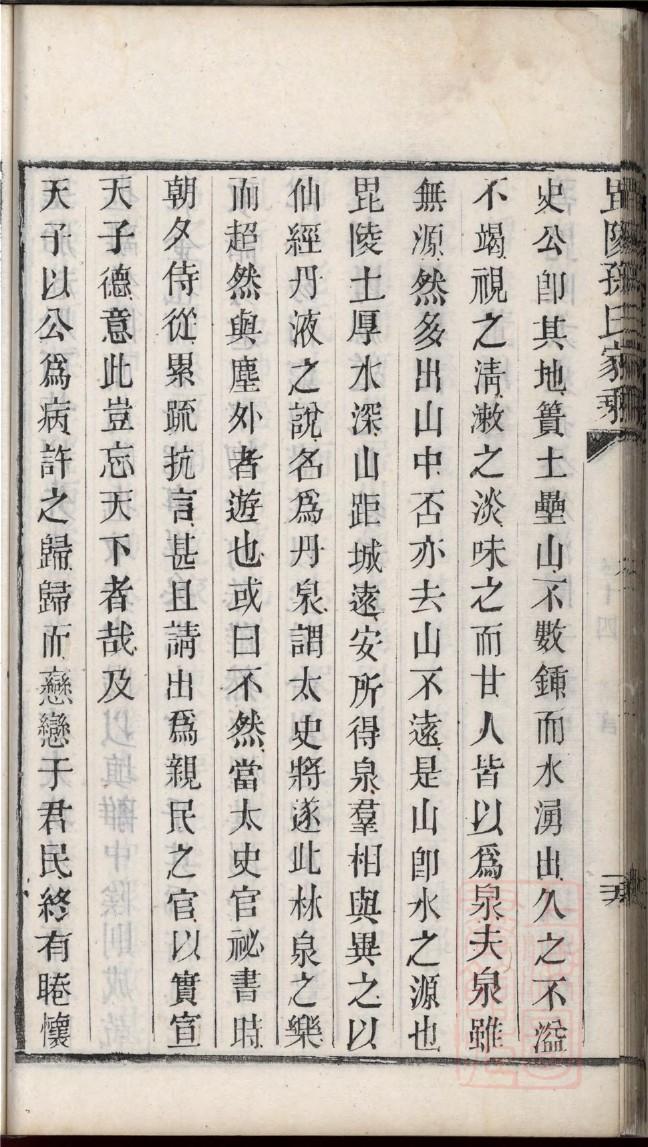 毘陵孫氏家乘
史公卽其地簣土壘山不數鍤而水湧出久之不溢
不竭視之淸漱之淡味之而甘人皆以爲泉夫泉雖
無源然多出山中否亦去山不遠是山卽水之源也
毘陵土厚水深山距城遠安所得泉羣相與異之以
仙經丹液之說名爲丹泉謂太史將遂此林泉之樂
而超然與塵外者遊也或曰不然當太史官祕書時
朝夕侍從累疏抗言甚且請出爲親民之官以實宣
天子德意此豈忘天下者哉及
天子以公爲病許之歸歸而戀戀于君民終有睠懷